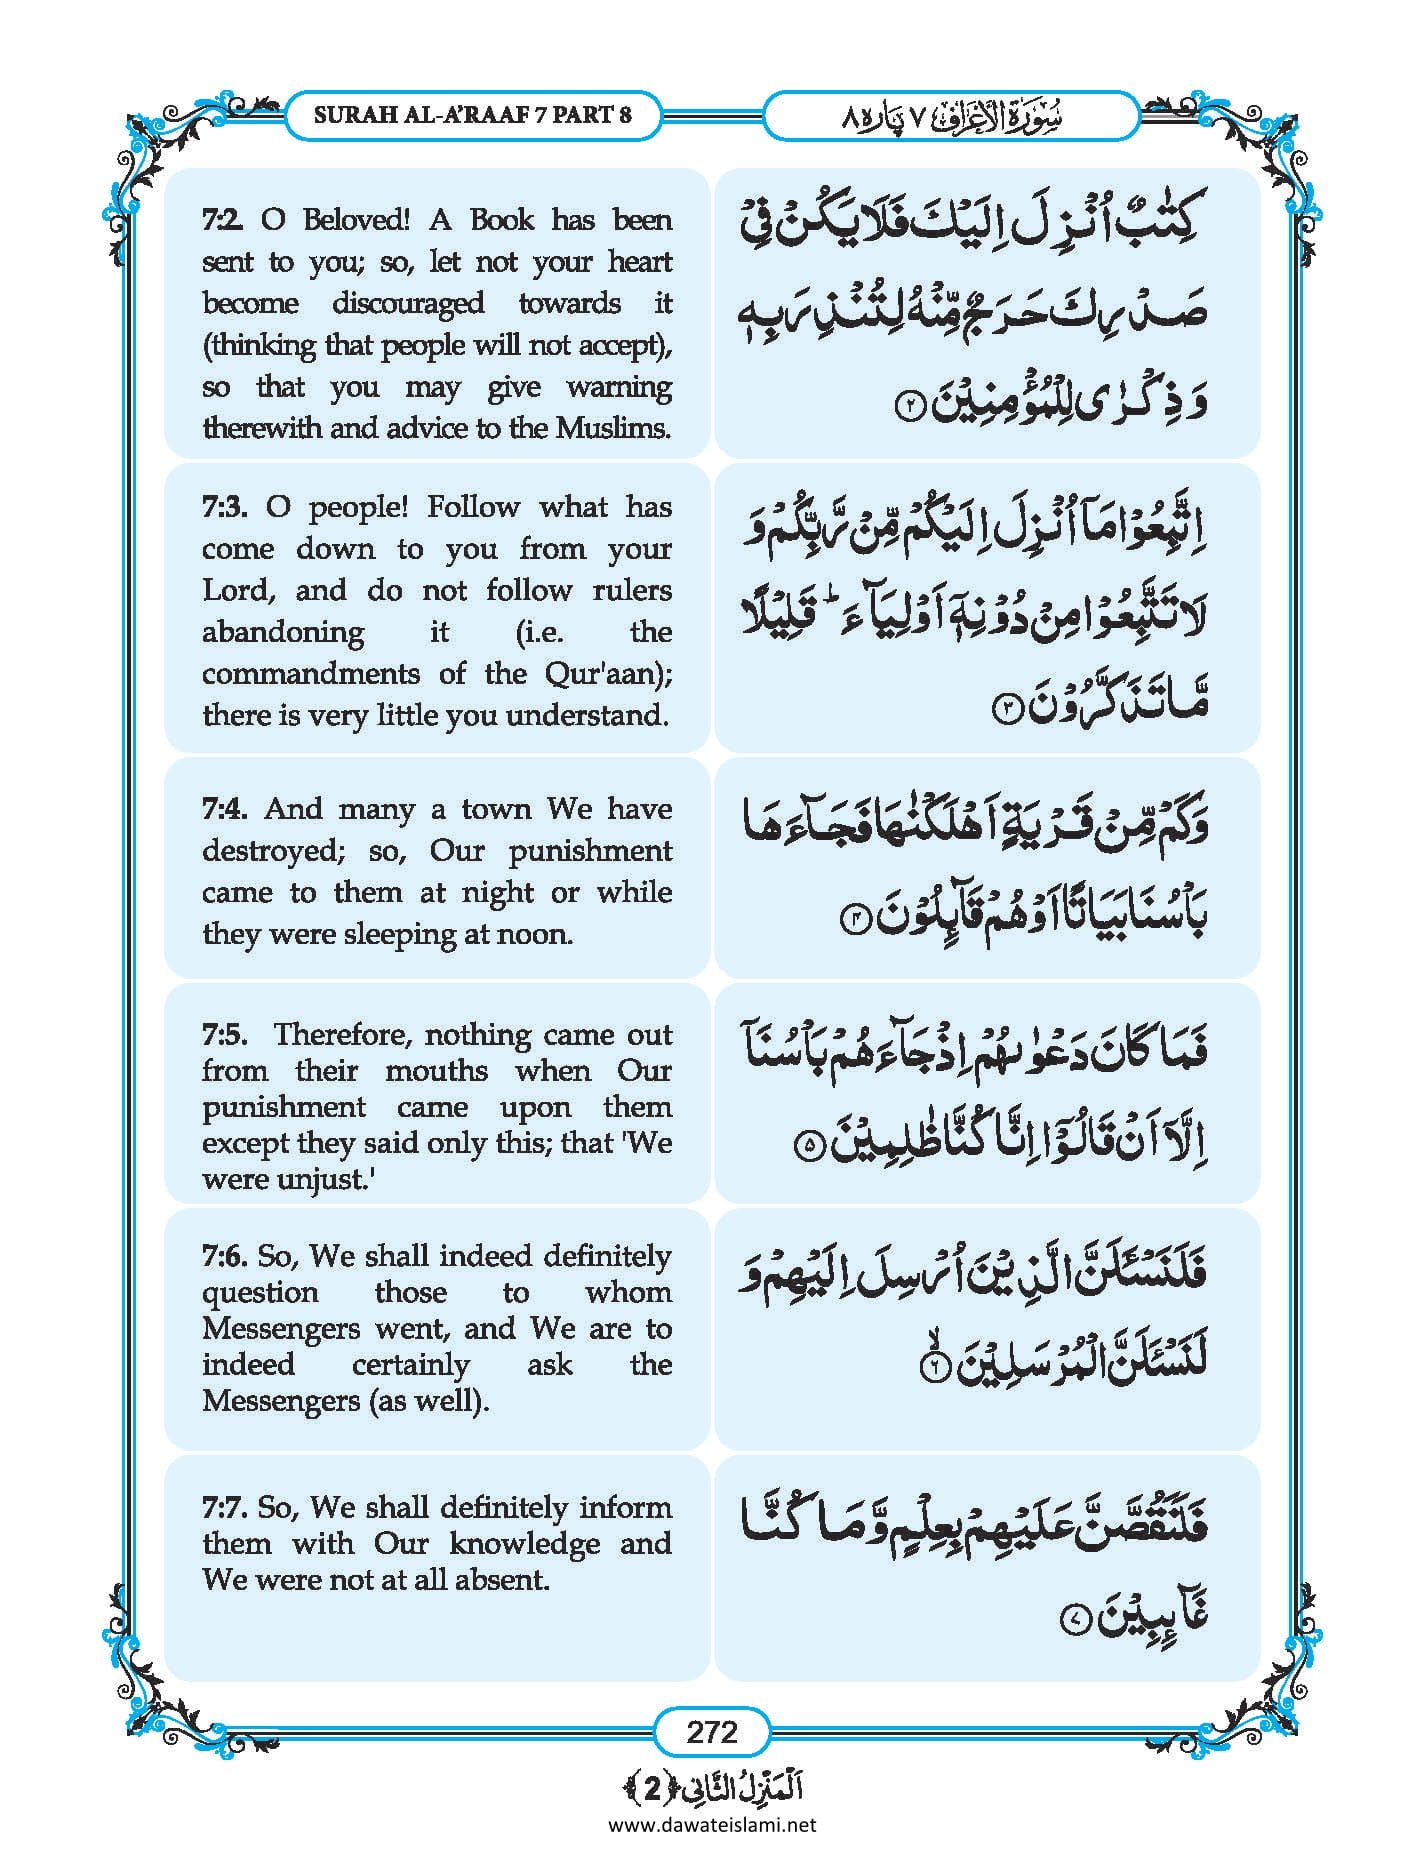 SURAH AL-A'RAAF 7 PART 8
سُوْرَةُ الْاَعْرَاف ٧ پاره ٨
7:2. O Beloved! A Book has been
sent to you; so, let not your heart
become discouraged towards it
(thinking that people will not accept),
so that you may give warning
therewith and advice to the Muslims.
كِتٰبٌ اُنْزِلَ اِلَيْكَ فَلَا يَكُنْ فِيْ
صَدْرِكَ حَرَجٌ مِّنْهُ لِتُنْذِرَ بِهٖ
وَ ذِكْرٰى لِلْمُؤْمِنِيْنَ ﴿۲﴾
7:3. O people! Follow what has
come down to you from your
Lord, and do not follow rulers
abandoning it (i.e. the
commandments of the Qur'aan);
there is very little you understand.
اِتَّبِعُوْا مَاۤ اُنْزِلَ اِلَيْكُمْ مِّنْ رَّبِّكُمْ وَ
لَا تَتَّبِعُوْا مِنْ دُوْنِهٖۤ اَوْلِيَآءَ ؕ قَلِيْلًا
مَّا تَذَكَّرُوْنَ ﴿۳﴾
7:4. And many a town We have
destroyed; so, Our punishment
came to them at night or while
they were sleeping at noon.
وَكَمْ مِّنْ قَرْيَةٍ اَهْلَكْنٰهَا فَجَآءَهَا
بَاْسُنَا بَيَاتًا اَوْ هُمْ قَآئِلُوْنَ ﴿۴﴾
7:5. Therefore, nothing came out
from their mouths when Our
punishment came upon them
except they said only this; that 'We
were unjust.'
فَمَا كَانَ دَعْوٰىهُمْ اِذْ جَآءَهُمْ بَاْسُنَاۤ
اِلَّاۤ اَنْ قَالُوْۤا اِنَّا كُنَّا ظٰلِمِيْنَ ﴿۵﴾
7:6. So, We shall indeed definitely
question those to whom
Messengers went, and We are to
indeed certainly ask the
Messengers (as well).
فَلَنَسْـَٔلَنَّ الَّذِيْنَ اُرْسِلَ اِلَيْهِمْ وَ
لَنَسْـَٔلَنَّ الْمُرْسَلِيْنَ ﴿۶﴾ۙ
7:7. So, We shall definitely inform
them with Our knowledge and
We were not at all absent.
فَلَنَقُصَّنَّ عَلَيْهِمْ بِعِلْمٍ وَّ مَا كُنَّا
غَآئِبِيْنَ ﴿۷﴾
272
اَلْمَنْزِلُ الثَّانِي ﴿2﴾
www.dawateislami.net